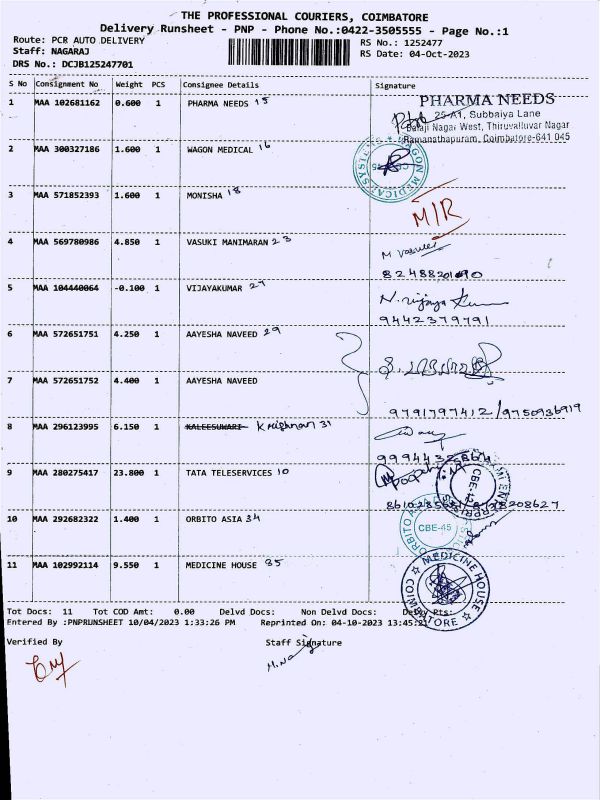 THE PROFESSIONAL COURIERS, COIMBATORE
Delivery Runsheet - PNP - Phone No.:0422-3505555 - Page No.:1
Route: PCR AUTO DELIVERY
RS No.: 1252477
Staff: NAGARAJ
RS Date: 04-Oct-2023
DRS No.: DCJB125247701
S No Consignment No Weight PCS Consignee Details Signature
1 MAA 102681162 0.600 1 PHARMA NEEDS 15
PHARMA NEEDS
25-A1, Subbaiya Lane
Balaji Nagar West, Thiruvalluvar Nagar
Ramanathapuram, Coimbatore-641 045
2 MAA 300327186 1.600 1 WAGON MEDICAL 16
WAGON MEDICAL SYSTEMS
3 MAA 571852393 1.600 1 MONISHA 18
M/R
4 MAA 569780986 4.850 1 VASUKI MANIMARAN 23
M Vasuki
5 MAA 104440064 -0.100 1 VIJAYAKUMAR 27
N. Vijaya Kumar
9442379791
6 MAA 572651751 4.250 1 AAYESHA NAVEED 29
7 MAA 572651752 4.400 1 AAYESHA NAVEED
9791797412/9750936919
8 MAA 296123995 6.150 1 KALEESUWARI Krishnan 31
9 MAA 280275417 23.800 1 TATA TELESERVICES 10
CBE-12
10 MAA 292682322 1.400 1 ORBITO ASIA 34
CBE-45
11 MAA 102992114 9.550 1 MEDICINE HOUSE 35
MEDICINE HOUSE
COIMBATORE
Tot Docs: 11 Tot COD Amt: 0.00 Delvd Docs: Non Delvd Docs: Delvd Pts:
Entered By :PNPRUNSHEET 10/04/2023 1:33:26 PM Reprinted On: 04-10-2023 13:45:21
Verified By Staff Signature